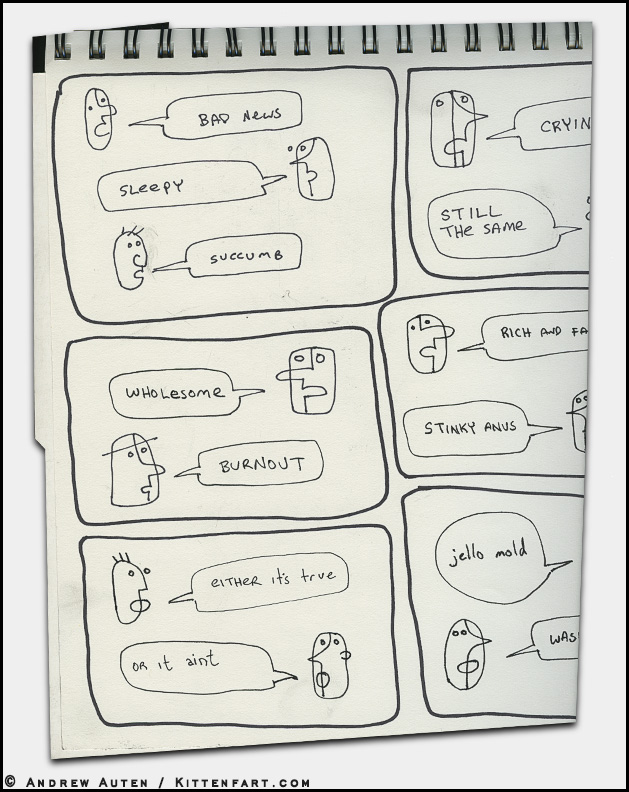 BAD NEWS
SLEEPY
SUCCUMB
CRYIN
STILL
THE SAME
WHOLESOME
BURNOUT
RICH AND FA
STINKY ANUS
EITHER it's true
OR it aint
jello mold
WAS
© ANDREW AUTEN / KITTENFART.COM